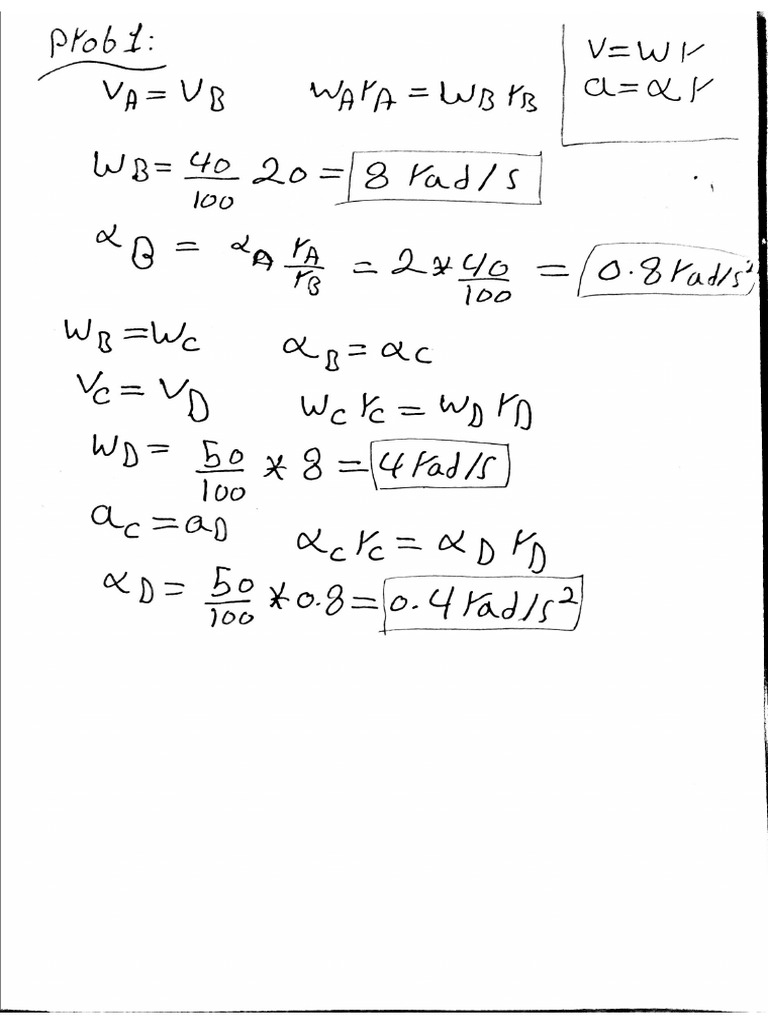 prob 1:
V = W r
a = α r
V_A = V_B    W_A r_A = W_B r_B
W_B = 40/100 20 = 8 rad/s
α_B = α_A r_A/r_B = 2 * 40/100 = 0.8 rad/s²
W_B = W_C    α_B = α_C
V_C = V_D    W_C r_C = W_D r_D
W_D = 50/100 * 8 = 4 rad/s
a_C = a_D    α_C r_C = α_D r_D
α_D = 50/100 * 0.8 = 0.4 rad/s²